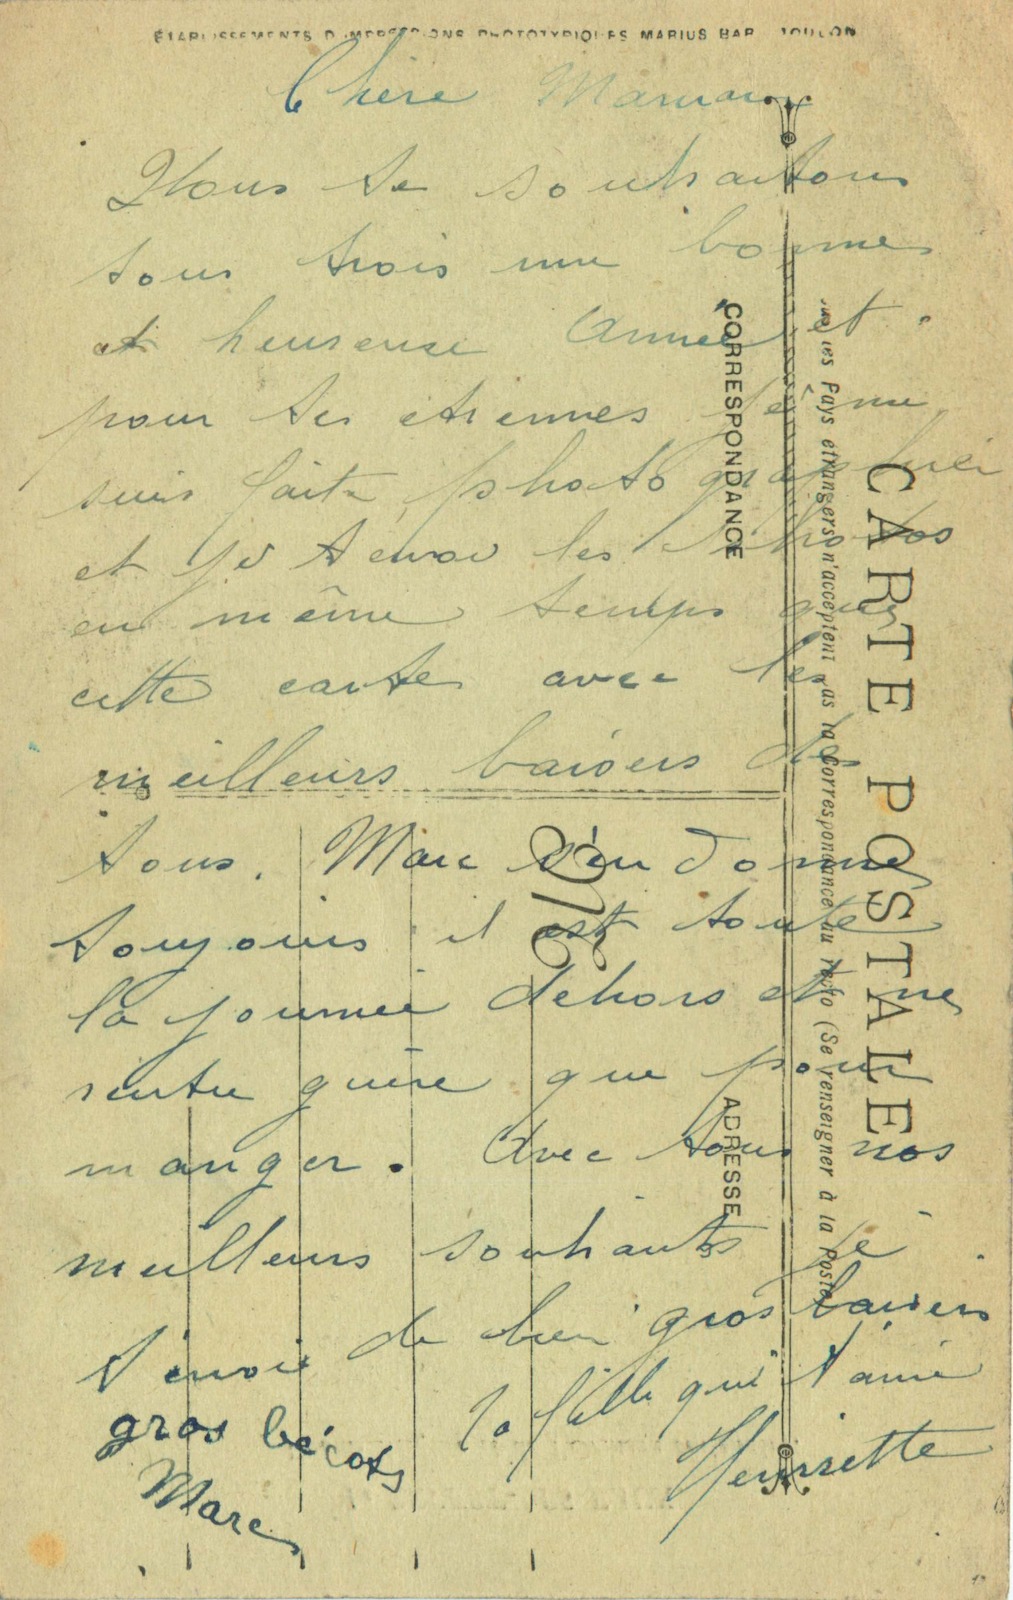 ÉTABLISSEMENTS D'IMPRESSIONS PHOTOTYPIQUES MARIUS BAR TOULON
Chère Maman
Nous te souhaitons
tous trois une bonne
et heureuse Année et
pour tes etrennes je me
suis fait photographier
et je t envoi les photos
en même temps que
cette carte avec les
meilleurs baisers de
tous. Marc s'en donne
toujours il est toute
la journée dehors et ne
rentre guère que pour
manger. Avec tous nos
meilleurs souhaits je
t'envoie de bien gros baisers
ta fille qui t'aime
Henriette
gros bécots
Marc
CARTE POSTALE
les Pays étrangers n'acceptent pas la Correspondance au recto (Se renseigner à la Poste)
CORRESPONDANCE
ADRESSE